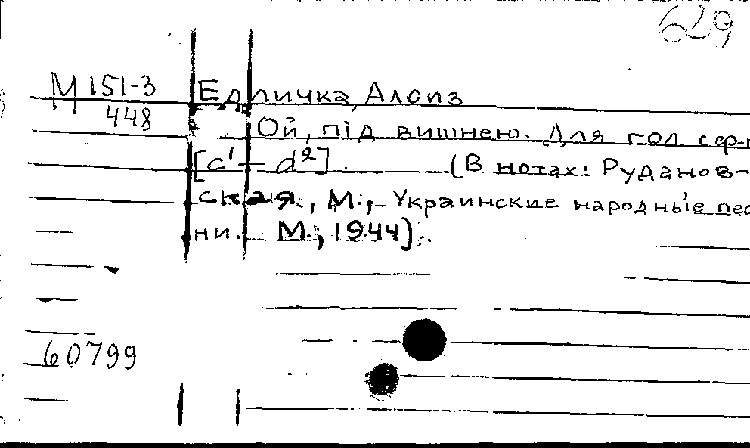 629
М151-3 Едличка, Алоиз
448 Ой, під вишнею. Для гол сер-п
[c¹ – d²] (В нотах: Рудановская, М., Украинские народные пес
ни. М., 1944).
60799